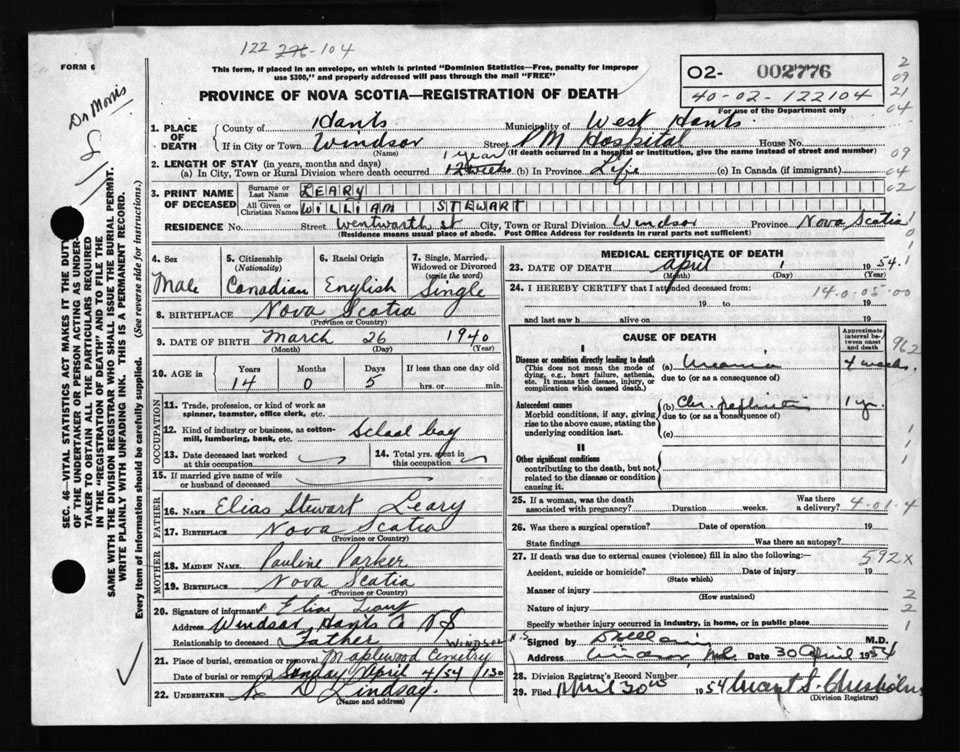 122 276-104
FORM 6
This form, if placed in an envelope, on which is printed "Dominion Statistics—Free, penalty for improper
use $300," and properly addressed will pass through the mail "FREE"
O2- 002776
40-02-122104
For use of the Department only
PROVINCE OF NOVA SCOTIA—REGISTRATION OF DEATH
Dr Morris
1. PLACE OF DEATH
County of Hants Municipality of West Hants
If in City or Town Windsor Street P M Hospital House No.
(Name) (If death occurred in a hospital or institution, give the name instead of street and number)
2. LENGTH OF STAY (in years, months and days) 1 year
(a) In City, Town or Rural Division where death occurred 12 weeks (b) In Province Life (c) In Canada (if immigrant)
3. PRINT NAME OF DECEASED
Surname or Last Name LEARY
All Given or Christian Names WILLIAM STEWART
RESIDENCE No. Street Wentworth St City, Town or Rural Division Windsor Province Nova Scotia
(Residence means usual place of abode. Post Office Address for residents in rural parts not sufficient)
4. Sex Male
5. Citizenship (Nationality) Canadian
6. Racial Origin English
7. Single, Married, Widowed or Divorced (write the word) Single
8. BIRTHPLACE Nova Scotia
(Province or Country)
9. DATE OF BIRTH March 26 1940
(Month) (Day) (Year)
10. AGE in Years 14 Months 0 Days 5 If less than one day hrs. or min.
OCCUPATION
11. Trade, profession, or kind of work as spinner, teamster, office clerk, etc.
12. Kind of industry or business, as cotton-mill, lumbering, bank, etc. School boy
13. Date deceased last worked at this occupation
14. Total yrs. spent in this occupation
15. If married give name of wife or husband of deceased
FATHER
16. NAME Elias Stewart Leary
17. BIRTHPLACE Nova Scotia
(Province or Country)
MOTHER
18. MAIDEN NAME Pauline Parker
19. BIRTHPLACE Nova Scotia
(Province or Country)
20. Signature of informant Elias Leary
Address Windsor Hants Co N S
Relationship to deceased Father
21. Place of burial, cremation or removal Maplewood Cemetry Windsor N.S
Date of burial or removal Sunday April 4/54 1954
22. UNDERTAKER D Lindsay
(Name and address)
MEDICAL CERTIFICATE OF DEATH
23. DATE OF DEATH April 1 1954
(Month) (Day) (Year)
24. I HEREBY CERTIFY that I attended deceased from 14-0-05-00
19 to 19
and last saw h alive on 19
CAUSE OF DEATH
Approximate interval between onset and death
I
Disease or condition directly leading to death
(This does not mean the mode of dying, e.g., heart failure, asthenia, etc. It means the disease, injury, or complication which caused death.)
(a) Uraemia 4 weeks.
due to (or as a consequence of)
Antecedent causes
Morbid conditions, if any, giving rise to the above cause, stating the underlying condition last.
(b) Chr. nephritis 1 yr.
due to (or as a consequence of)
(c)
II
Other significant conditions
contributing to the death, but not related to the disease or condition causing it.
25. If a woman, was the death associated with pregnancy? Duration weeks. Was there a delivery? 4-01-4
26. Was there a surgical operation? Date of operation 19
State findings Was there an autopsy?
27. If death was due to external causes (violence) fill in also the following:— 592x
Accident, suicide or homicide? Date of injury 19
(State which)
Manner of injury
(How sustained)
Nature of injury
Specify whether injury occurred in industry, in home, or in public place
Signed by M.D.
Address Windsor, N.S. Date 30 April 1954
28. Division Registrar's Record Number
29. Filed April 30th 1954 Chisholm
(Division Registrar)
SEC. 46—VITAL STATISTICS ACT MAKES IT THE DUTY
OF THE UNDERTAKER OR PERSON ACTING AS UNDER-
TAKER TO OBTAIN ALL THE PARTICULARS REQUIRED
IN THE "REGISTRATION OF DEATH" AND TO FILE THE
SAME WITH THE DIVISION REGISTRAR WHO SHALL ISSUE THE BURIAL PERMIT.
WRITE PLAINLY WITH UNFADING INK. THIS IS A PERMANENT RECORD.
Every item of information should be carefully supplied. (See reverse side for instructions.)
2
09
21
04
09
04
02
1
0
1
1
962
1
1
1
1
2
2
1